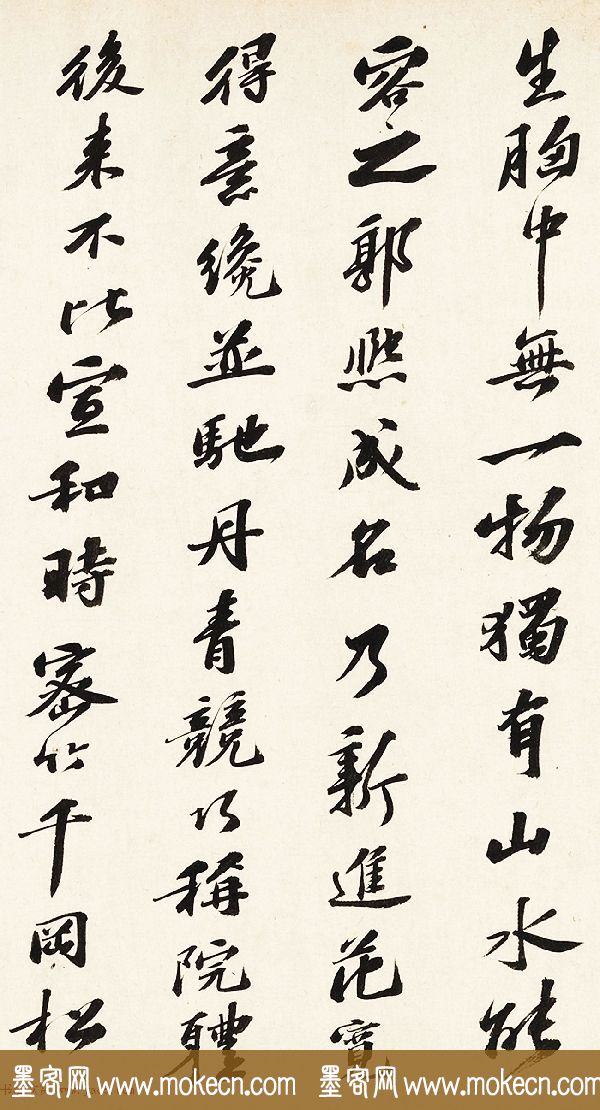 生胸中無一物獨有山水能
容之郭熙成名乃新進范寬
得意纔並馳丹青競巧稱院體
後来不比宣和時密竹千岡松
墨客网 www.mokecn.com 墨客网 www.mokecn.com